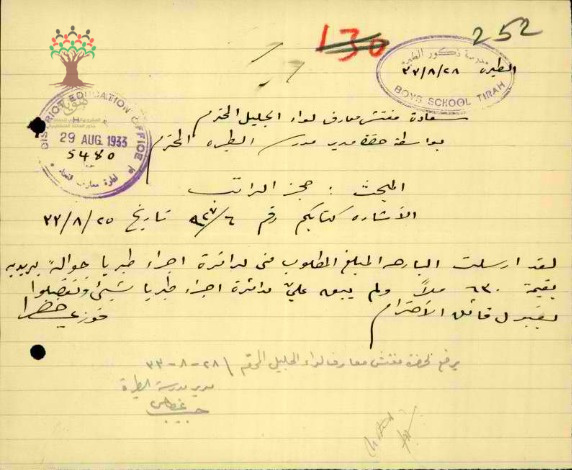 130
252
مدرسة ذكور الطيره
BOYS SCHOOL TIRAH
الطيره ٢٨/٨/٣٣
DISTRICT EDUCATION OFFICE
29 AUG. 1933
5480
سعادة مفتش معارف لواء الجليل المحترم
بواسطة حضرة مدير مدرسة الطيره المحترم
المبحث : حجز الراتب
الاشاره كتابكم رقم تاريخ ٢٥/٨/٣٣
لقد ارسلت البارحه المبلغ المطلوب مني لدائرة اجراء طبريا حوالة بريديه
بقيمة ٦٣٠ ملاً ولم يبق عليّ لدائرة اجراء طبريا شيئ وتفضلوا
بقبول فائق الاحترام
فوزي خضرا
يرفع لحضرة مفتش معارف لواء الجليل المحترم ٢٨-٨-٣٣
مدير مدرسة الطيرة